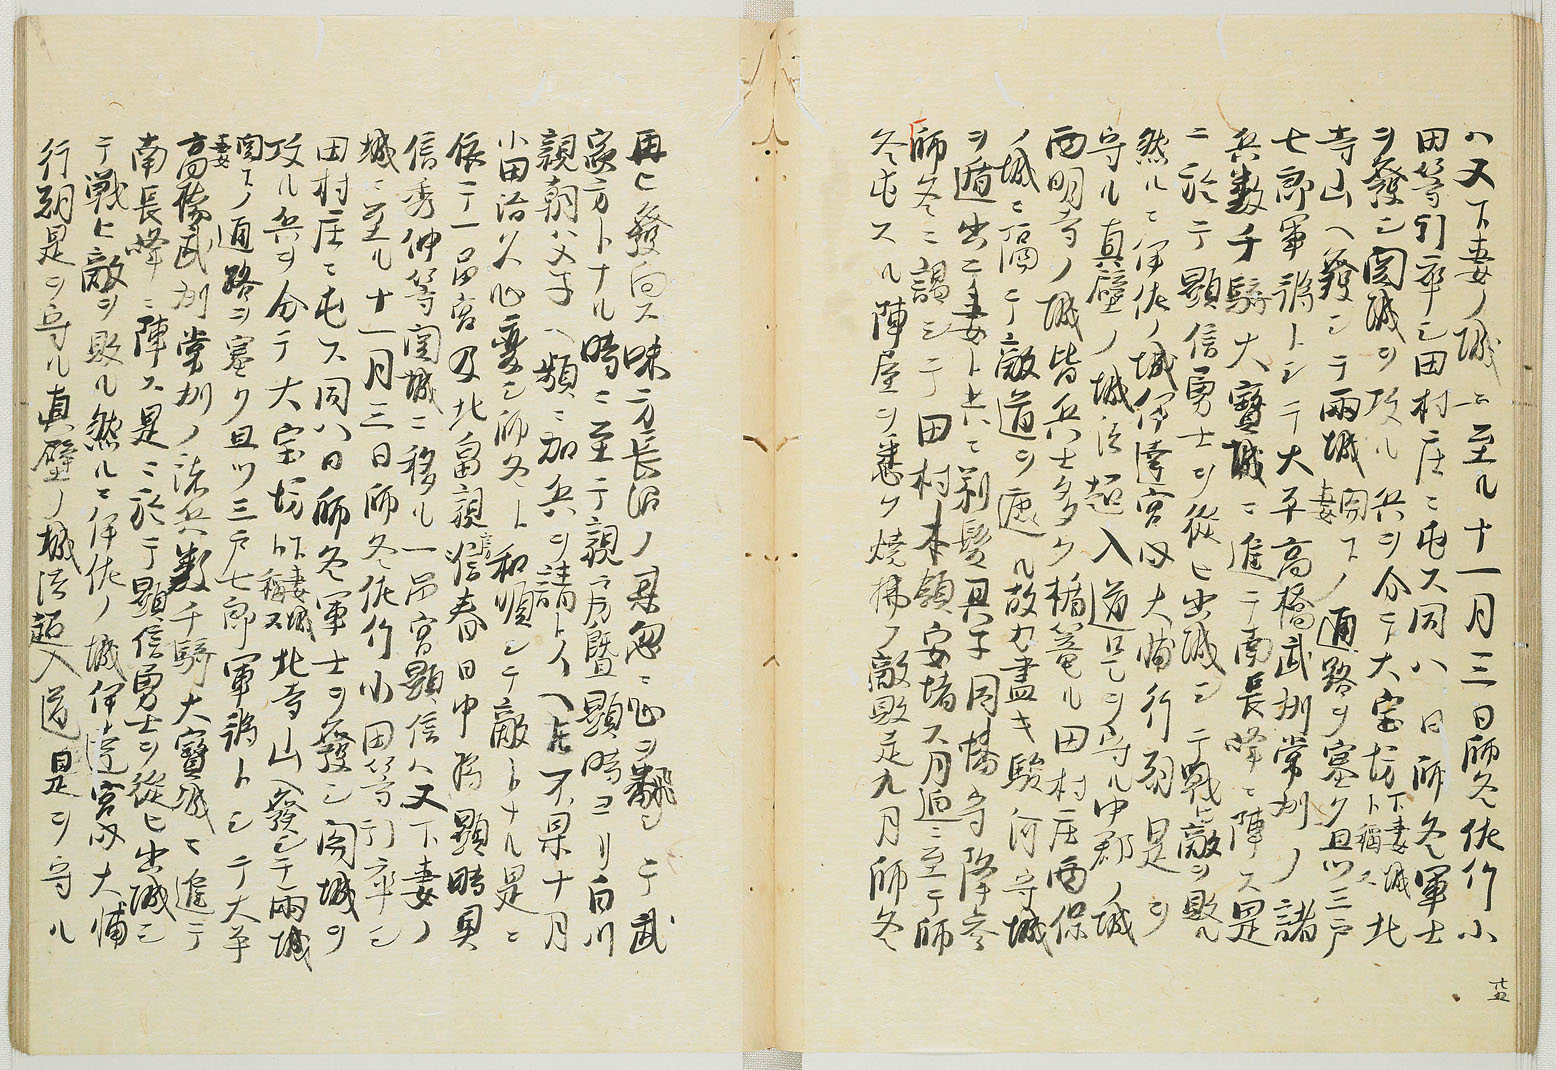 ハ又下妻ノ城ニ至ル十一月三日師冬佐竹小
田等引率シ田村庄ニ屯ス同八日師冬軍士
ヲ發シ関城ヲ攻ル兵ヲ分テ大宝坊下妻城ト稱ス北
寺山ヘ發シテ兩城関下妻ノ通路ヲ塞ク且ツ三戸
七郎軍将トシテ大平高橋武刕常刕ノ諸
兵數千騎大寶城ニ進テ南長峰ニ陣ス是
ニ於テ顕信勇士ヲ從ヒ出城シテ戰ヒ敵ヲ敗ル
然ルニ伊佐ノ城伊達宮内大輔行朝是ヲ
守ル真壁ノ城法超入道是ヲ守ル中郡ノ城
西明寺ノ城皆兵士多ク楯篭ル田村庄西保
ノ城ニ隔ニテ敵道ヲ遮ル故力盡キ駿河守城
ヲ遁出ニ妻ト共ニ剃髪具子同播守降参
師冬ニ謁シテ田村本領安堵ス月迫ニ至テ師
冬屯スル陣屋ヲ悉ク燒拂フ敵敗走九月師冬
再ヒ發向ス味方長沼ノ某忽ニ心ヲ飜シテ武
家方トナル時ニ至テ親房暨顕時ヨリ白川
親朝父子ヘ頻ニ加兵ヲ請ト人ヘ𪜈不果十月
小田治久心變シ師冬ト和順シテ敵トナル是ニ
依テ一品宮及北畠親房信春日中将顕時具
信秀仲等関城ニ移ル一品宮顕信ハ又下妻ノ
城ニ至ル十一月三日師冬佐竹小田等引率シ
田村庄ニ屯ス同八日師冬軍士ヲ發シ関城ヲ
攻ル兵ヲ分テ大宝坊下妻城ト稱ス北寺山ヘ發シテ兩城
関下妻ノ通路ヲ塞ク且ツ三戸七郎軍将トシテ大平
高橋武刕常刕ノ諸兵數千騎大寶城ニ進テ
南長峰ニ陣ス是ニ於テ顕信勇士ヲ從ヒ出城シ
テ戰ヒ敵ヲ敗ル然ルニ伊佐ノ城伊達宮内大輔
行朝是ヲ守ル真壁ノ城法超入道是ヲ守ル